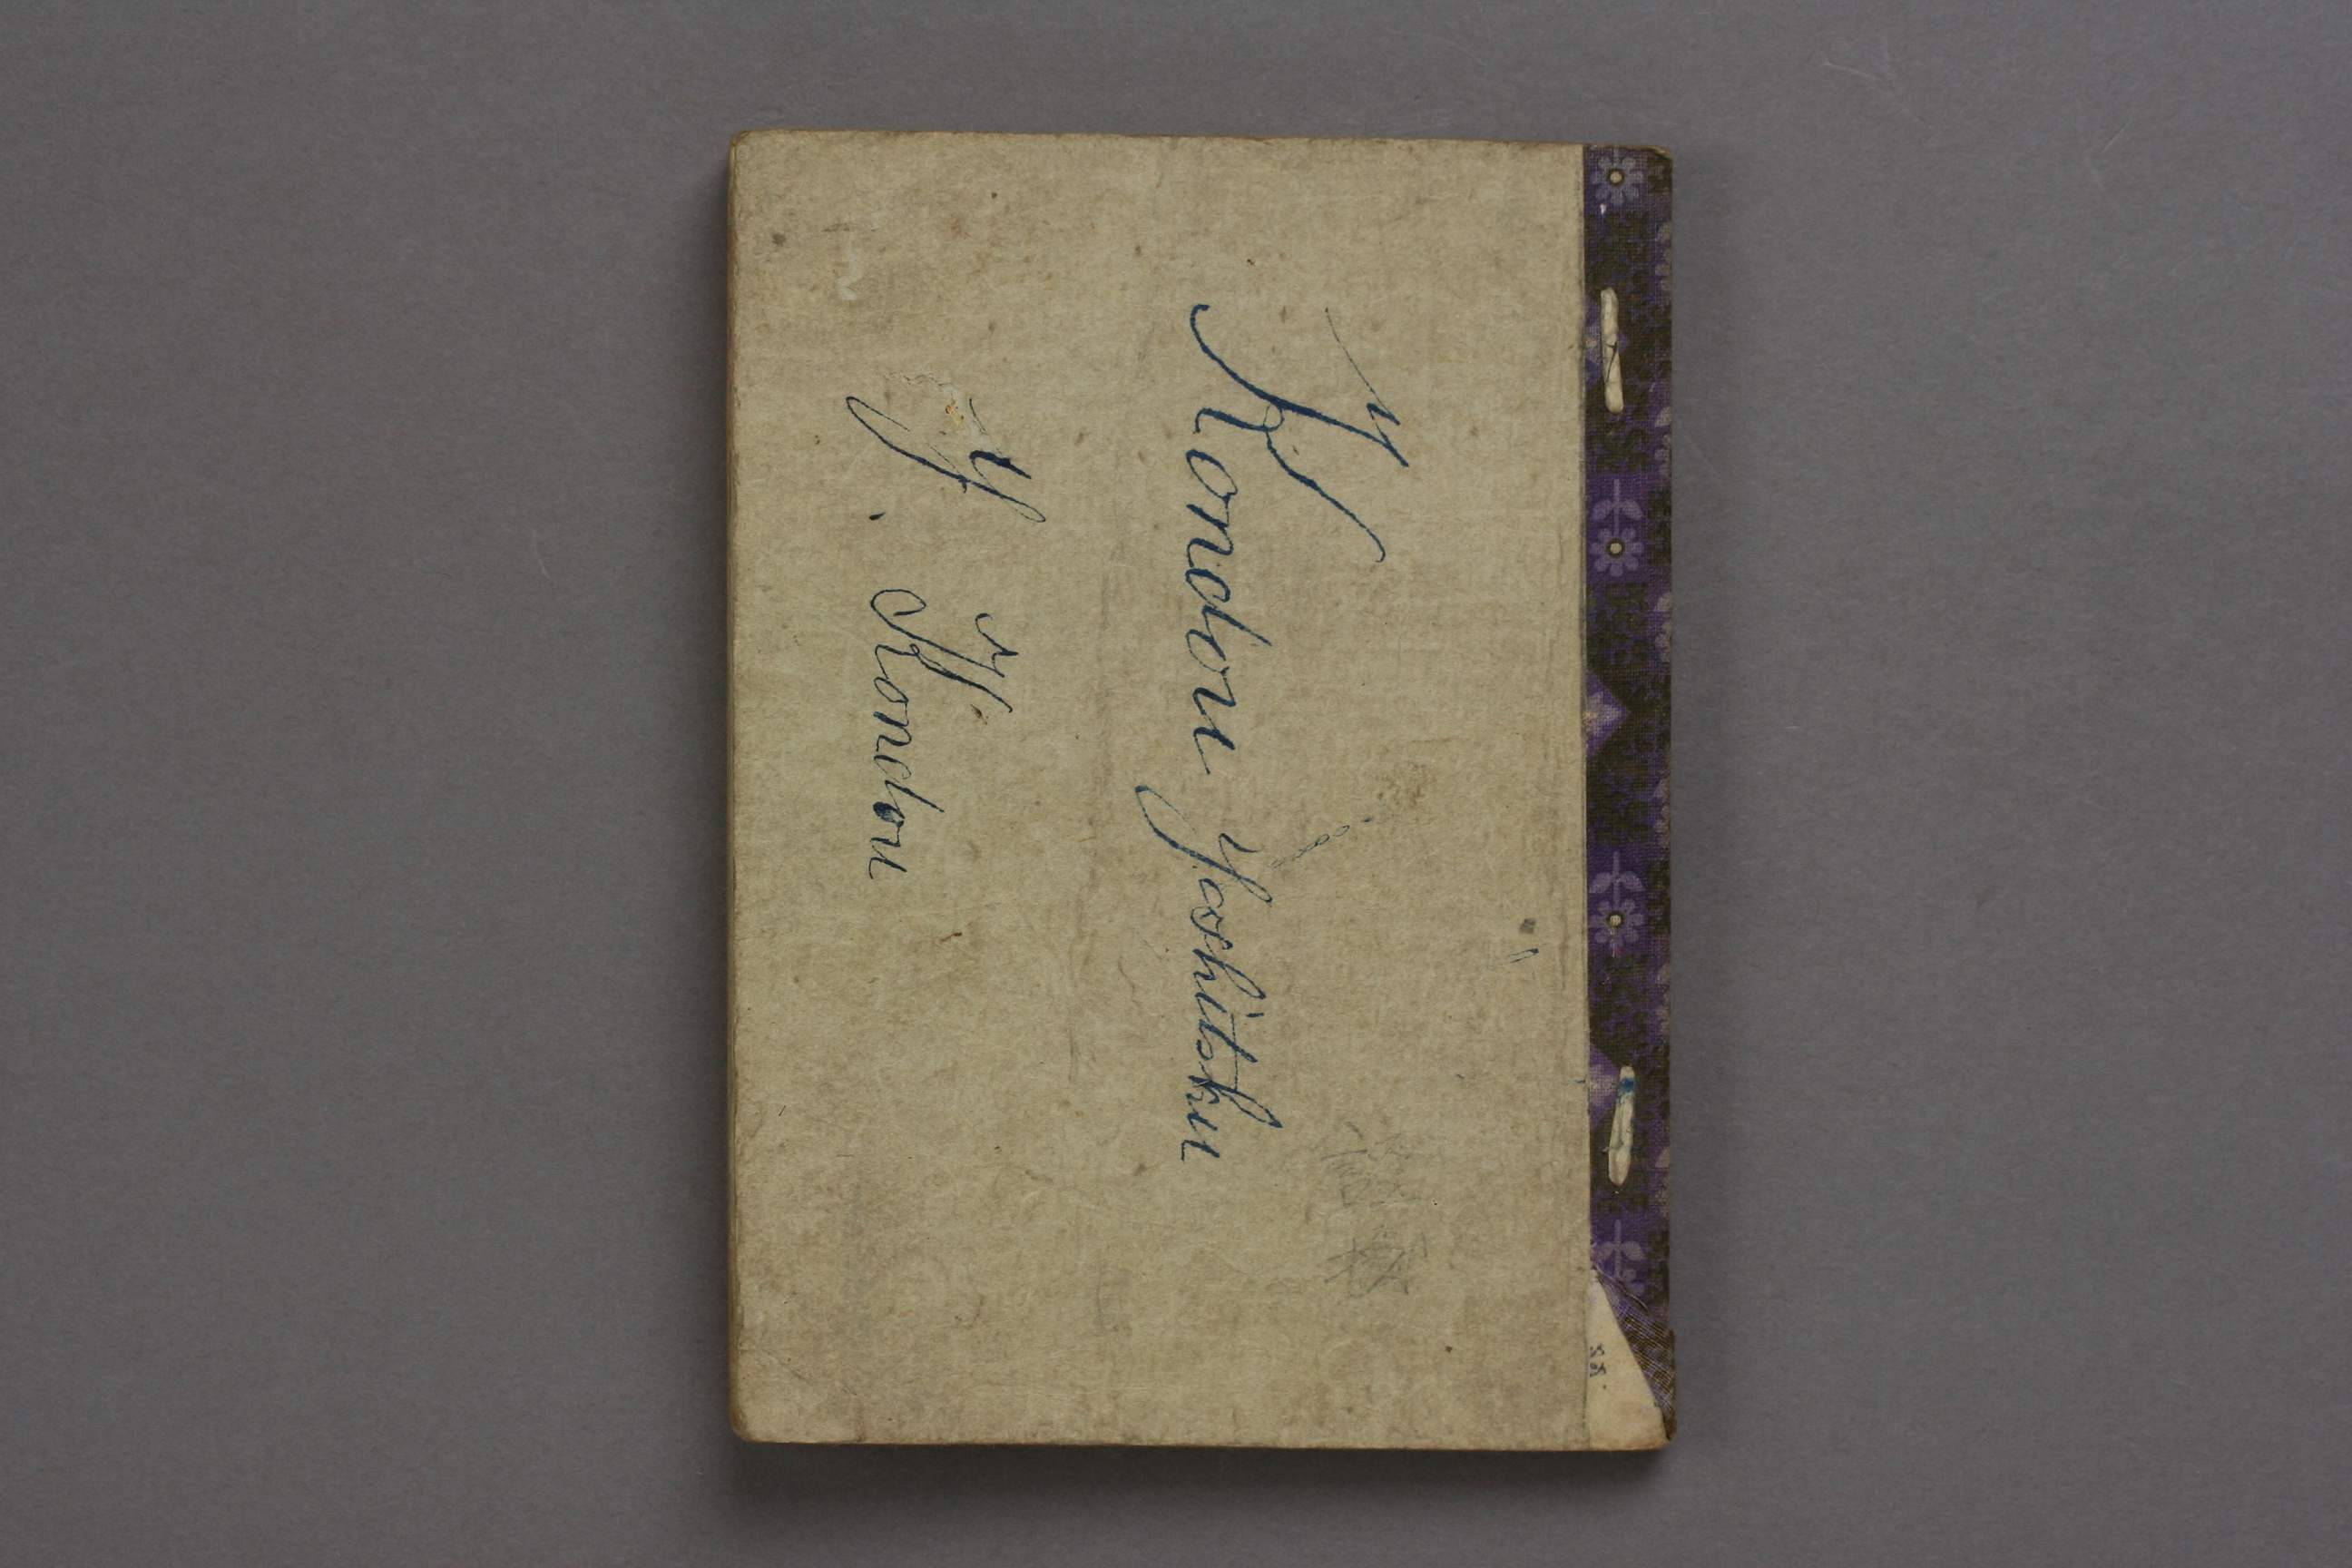 Kondou Yoshitsku
Y. Kondou